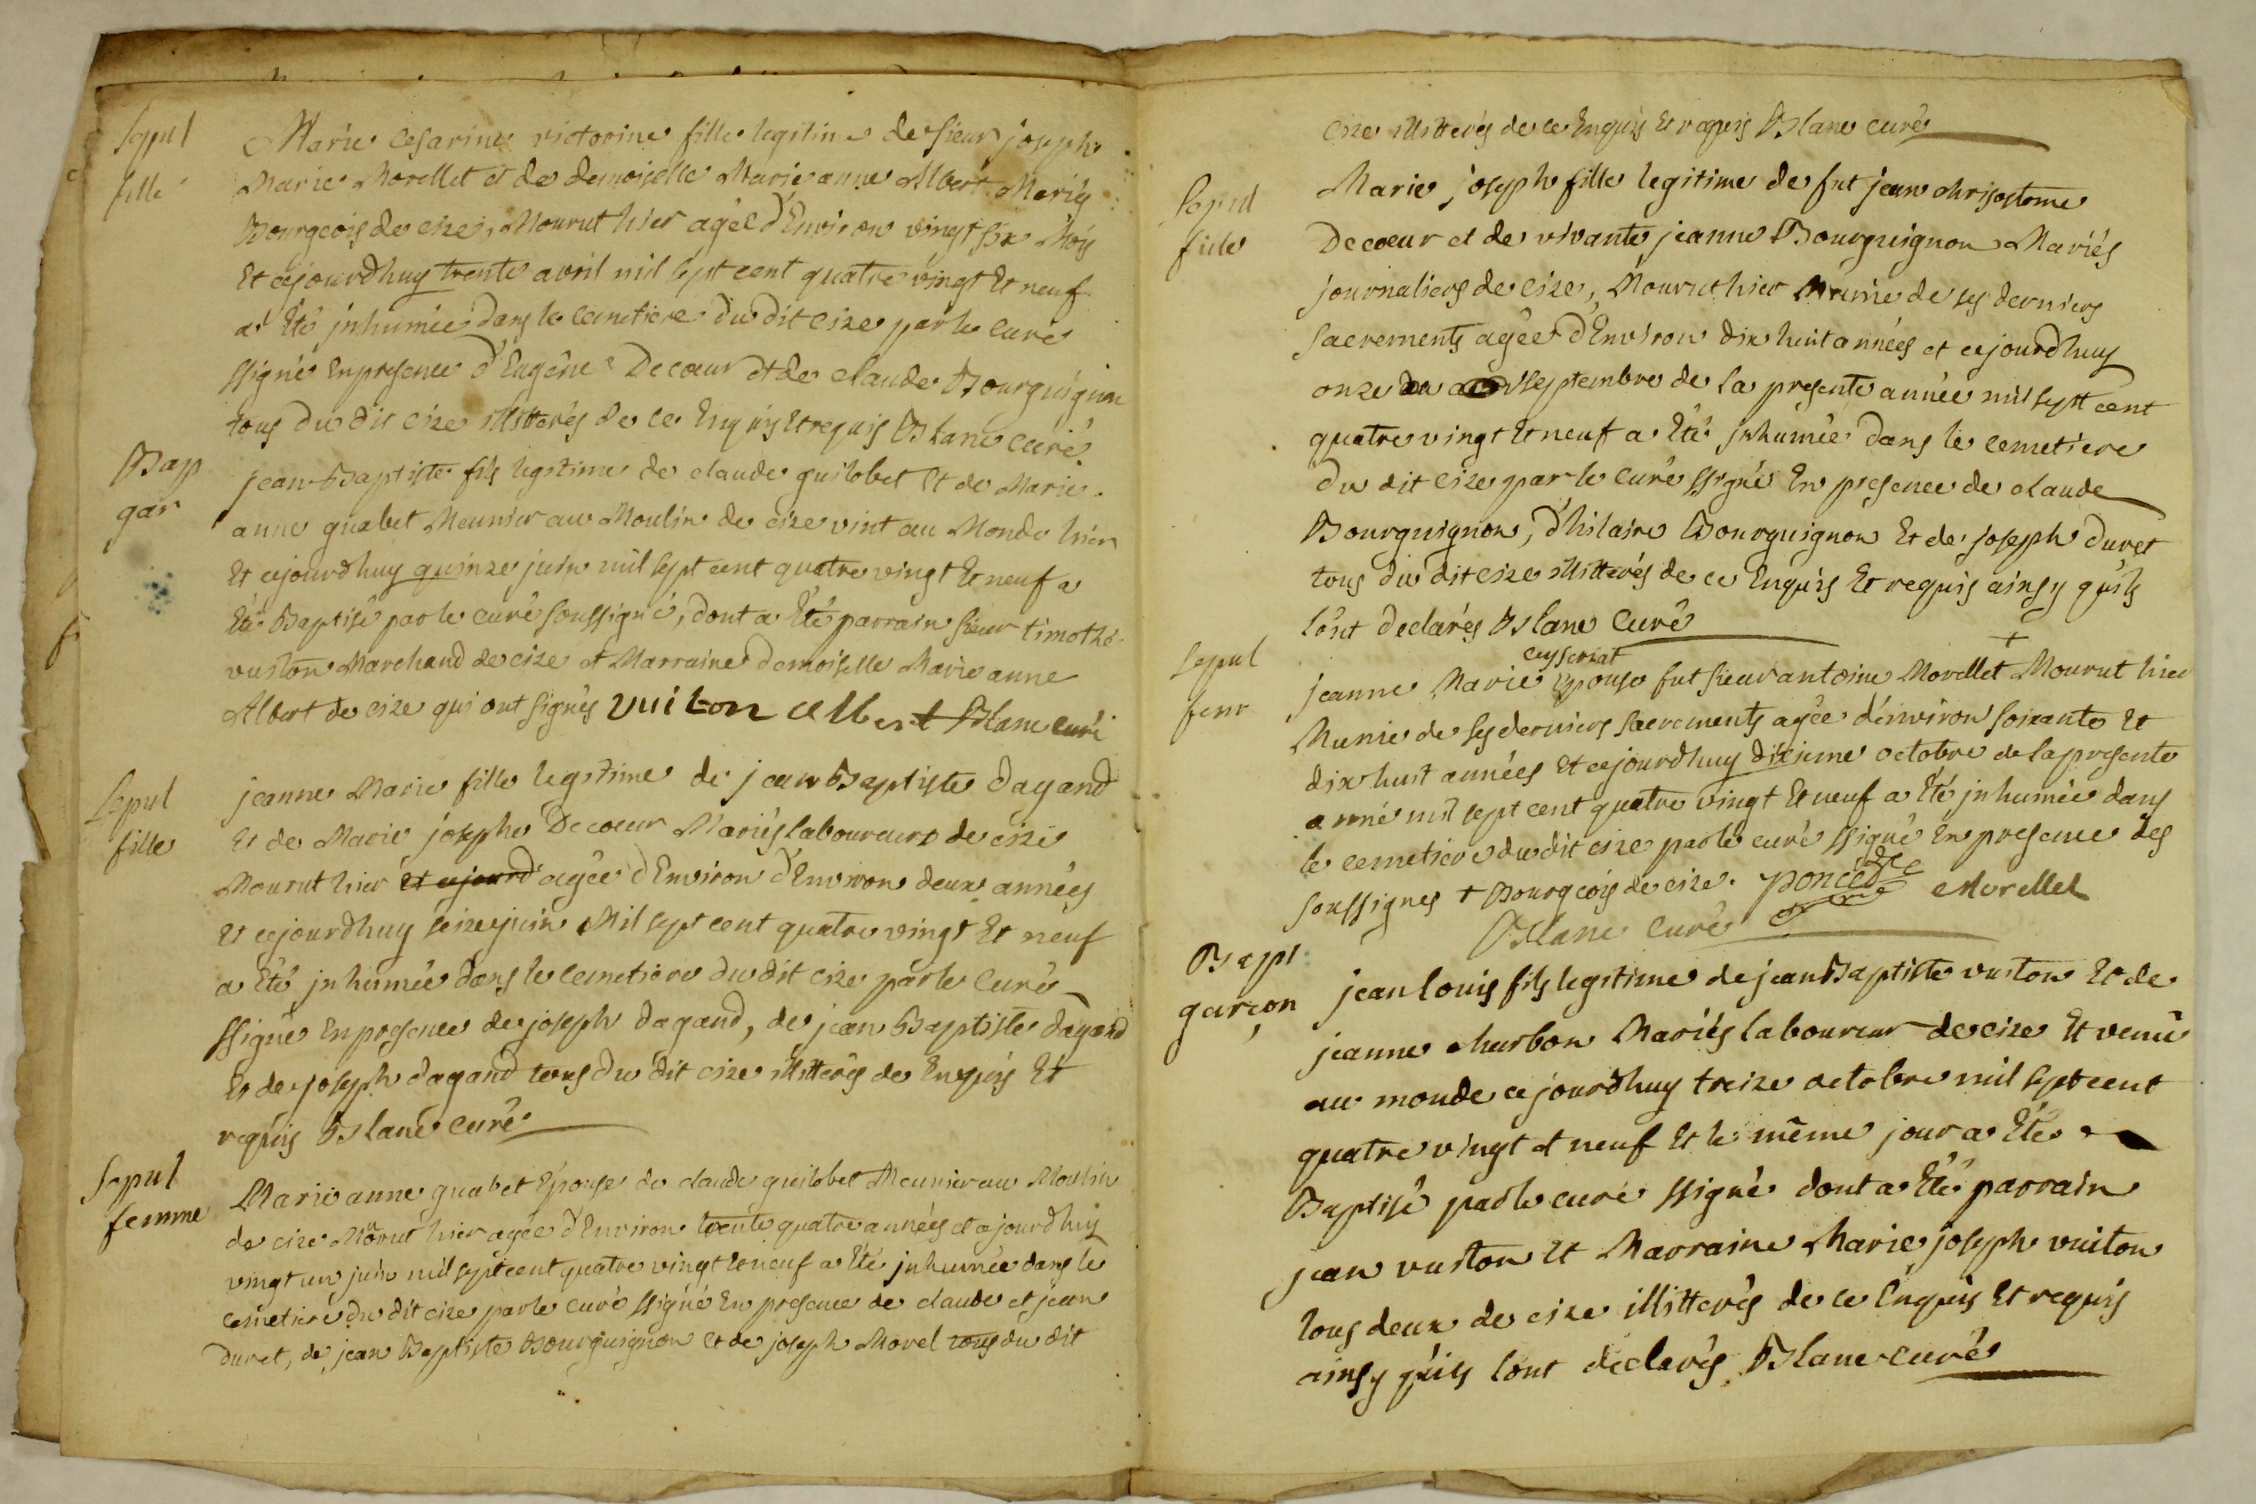 Sepul
fille
Marie Cesarine victorine fille legitime de sieur joseph
Marie Morellet et de demoiselle Marie anne Albert Mariés
Bourgeois de cize, Mourut hier agée d'Environ vingt six Mois
Et cejourdhuy trente avril mil sept cent quatre vingt Et neuf
a Eté jnhumée dans le cemetiere du dit cize par le curé
ssigné En presence d'Eugéne Decœur et de claude Bourguignon
tous du dit cize illitterés de ce Enquis Et requis Blanc curé
Bap
gar
jean Baptiste fils legitime de claude guilobet Et de Marie
anne guabet Meunier au Moulin de cize vint au Monde hier
Et cejourdhuy quinze juin mil sept cent quatre vingt Et neuf a
Eté Baptisé par le curé soussigné, dont a Eté parrain sieur timothé
vuiton Marchand de cize et Marraine demoiselle Marie anne
Albert de cize qui ont signés vuiton albert Blanc curé
Sepul
fille
jeanne Marie fille legitime de jean Baptiste dagand
Et de Marie josephe Decoeur Mariés laboureurs de cize
Mourut hier et cejourd agée d'Environ d'Environ deux années
Et cejourdhuy seize juin Mil sept cent quatre vingt Et neuf
a Eté jnhumée dans le cemetiere du dit cize par le curé
ssigné En presence de joseph dagand, de jean Baptiste dagand
Et de joseph dagand tous du dit cize illitterés de Enquis Et
requis Blanc curé
Sepul
femme
Marie anne guabet Epouse de claude guilobet Meunier au Moulin
de cize Mourut hier agée d'Environ trente quatre années et cejourdhuy
vingt un juin mil sept cent quatre vingt Et neuf a Eté jnhumée dans le
cemetiere du dit cize par le curé ssigné En presence de claude et jean
duret, de jean Baptiste Bourguignon et de joseph Morel tous du dit
cize illitterés de ce Enquis Et requis Blanc curé
Sepul
fille
Marie joseph fille legitime de fut jean chrisostome
Decoeur et de vivante jeanne Bourguignon Mariés
journaliers de cize, Mourut hier Munie de ses derniers
sacrements agée d'Environ dix huit années et cejourdhuy
onze septembre de la presente année mil sept cent
quatre vingt Et neuf a Eté jnhumée dans le cemetiere
du dit cize par le curé ssigné En presence de claude
Bourguignon, d'hilaire Bourguignon Et de joseph duret
tous du dit cize illitterés de ce Enquis Et requis ainsy qu'ils
lont declarés Blanc Curé
Sepul
fem
cuyserat +
jeanne Marie Epouse fut sieur antoine Morellet Mourut hier
Munie de ses derniers sacrements agée d'environ soixante Et
dix huit années Et cejourdhuy dixieme octobre de la presente
anné mil sept cent quatre vingt Et neuf a Eté jnhumée dans
le cemetiere du dit cize par le curé ssigné En presence des
soussignes + Bourgeois de cize. poncet Morellet
Blanc curé
Bapt
garçon
jean louis fils legitime de jean Baptiste vuiton Et de
jeanne charbon Mariés laboureur de cize Et venu
au monde cejourdhuy treize octobre mil sept cent
quatre vingt et neuf Et le même jour a Eté
Baptisé par le curé ssigné dont a Eté parrain
jean vuiton Et Marraine Marie joseph vuiton
tous deux de cize illitterés de ce Enquis Et requis
ainsy qu'ils lont declarés Blanc curé